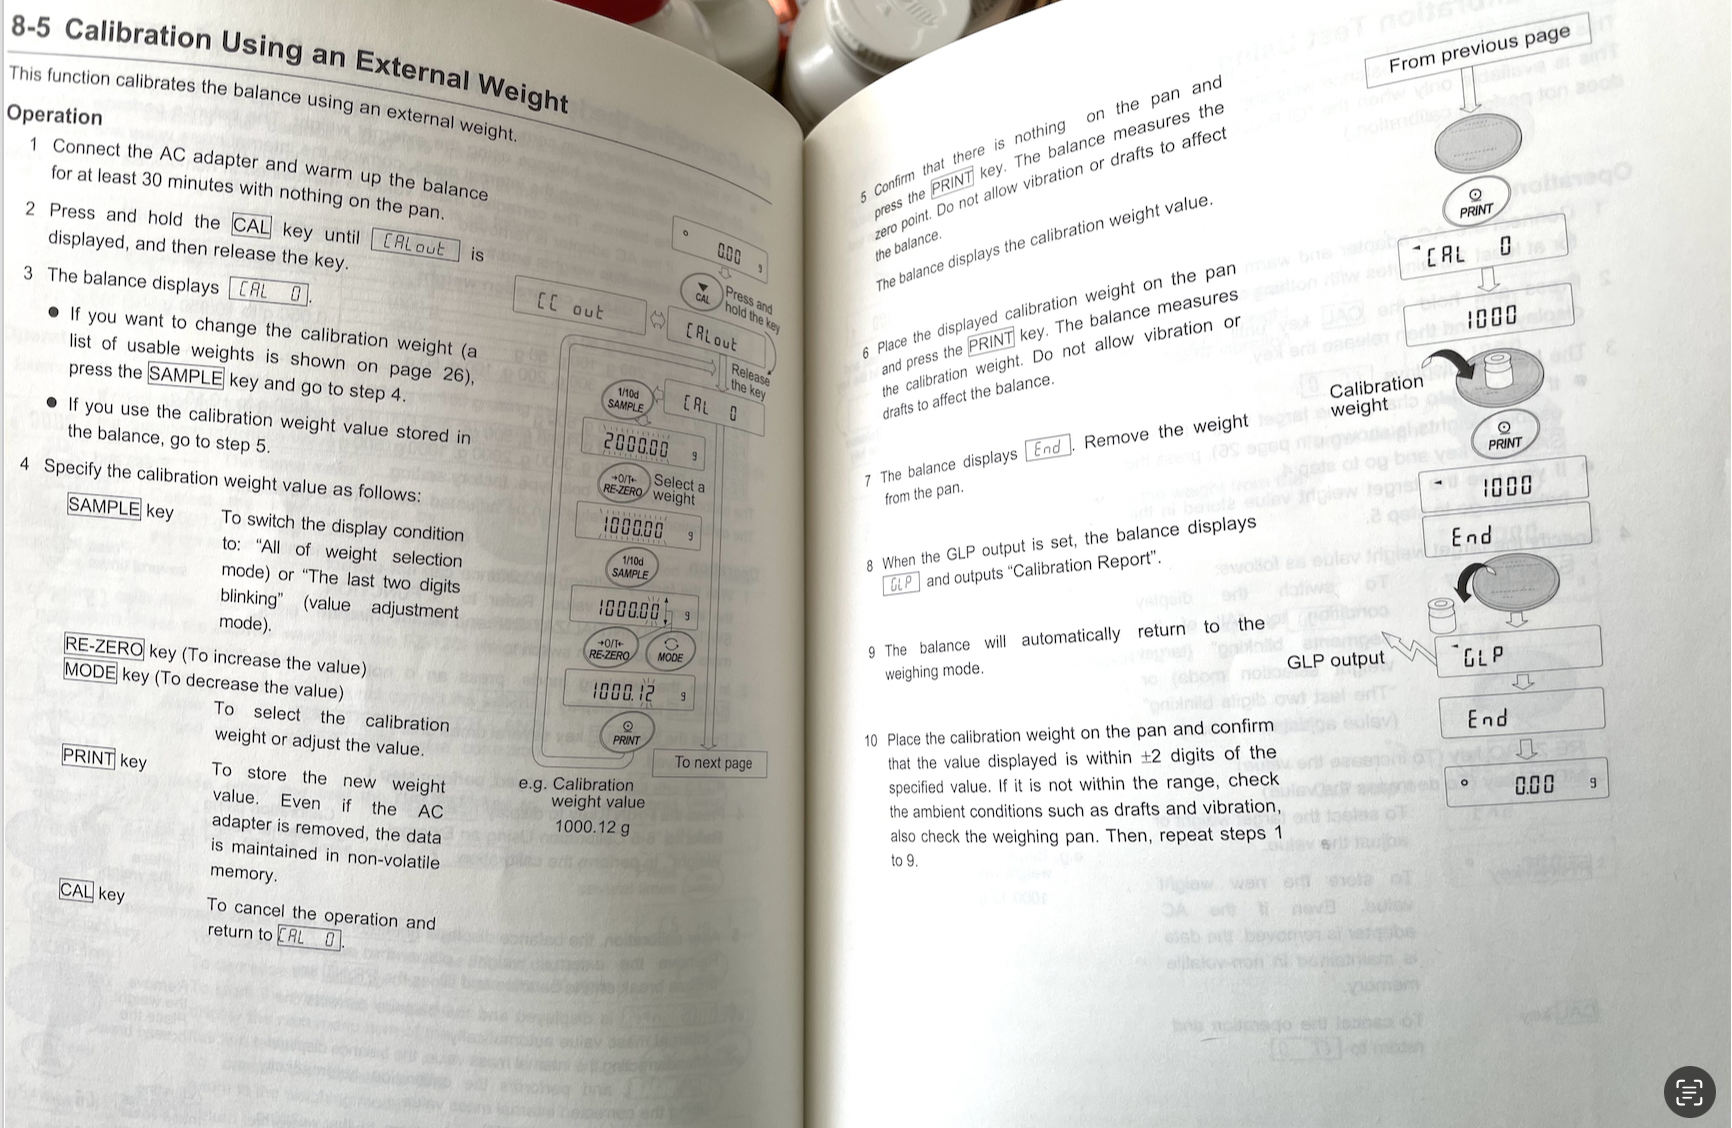 8-5 Calibration Using an External Weight
This function calibrates the balance using an external weight.
Operation
1 Connect the AC adapter and warm up the balance
for at least 30 minutes with nothing on the pan.
2 Press and hold the CAL key until CALout is
displayed, and then release the key.
3 The balance displays CAL 0.
● If you want to change the calibration weight (a
list of usable weights is shown on page 26),
press the SAMPLE key and go to step 4.
● If you use the calibration weight value stored in
the balance, go to step 5.
4 Specify the calibration weight value as follows:
SAMPLE key To switch the display condition
to: “All of weight selection
mode) or “The last two digits
blinking” (value adjustment
mode).
RE-ZERO key (To increase the value)
MODE key (To decrease the value)
To select the calibration
weight or adjust the value.
PRINT key To store the new weight
value. Even if the AC
adapter is removed, the data
is maintained in non-volatile
memory.
CAL key To cancel the operation and
return to CAL 0.
0.00 g
CAL
Press and
hold the key
CC out
CALout
Release
the key
1/10d
SAMPLE
CAL 0
2000.00 g
→O/T←
RE-ZERO
Select a
weight
1000.00 g
1/10d
SAMPLE
1000.00 g
→O/T←
RE-ZERO
MODE
1000.12 g
PRINT
To next page
e.g. Calibration
weight value
1000.12 g
5 Confirm that there is nothing on the pan and
press the PRINT key. The balance measures the
zero point. Do not allow vibration or drafts to affect
the balance.
The balance displays the calibration weight value.
6 Place the displayed calibration weight on the pan
and press the PRINT key. The balance measures
the calibration weight. Do not allow vibration or
drafts to affect the balance.
7 The balance displays End. Remove the weight
from the pan.
8 When the GLP output is set, the balance displays
GLP and outputs “Calibration Report”.
9 The balance will automatically return to the
weighing mode.
10 Place the calibration weight on the pan and confirm
that the value displayed is within ±2 digits of the
specified value. If it is not within the range, check
the ambient conditions such as drafts and vibration,
also check the weighing pan. Then, repeat steps 1
to 9.
From previous page
PRINT
CAL 0
1000
Calibration
weight
PRINT
1000
End
GLP output
GLP
End
0.00 g